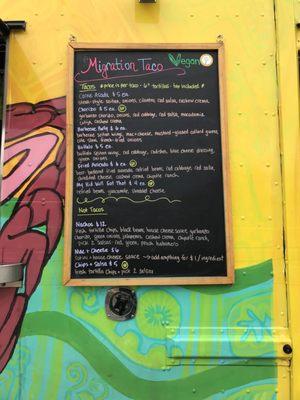 Migration Taco Vegan
Tacos * price is per taco - 6" tortillas - tax included *
Carne Asada $5 ea.
steak-style seitan, onions, cilantro, red salsa, cashew crema
Chorizo $5 ea.
garbanzo chorizo, onions, red cabbage, red salsa, macadamia
cotija, cashew crema
Barbacoa Party $6 ea.
mac + cheese, mustard-glazed collard greens,
Buffalo $5 ea.
buffalo seitan wings, red cabbage, radishes, blue cheese dressing,
green onions
Fried Avocado $6 ea.
beer battered fried avocado, refried beans, red cabbage, red salsa,
cheese, cashew crema, chipotle ranch
My Kid Will Eat That $4 ea.
refried beans, guacamole, shredded cheese
Not Tacos
Nachos $12
fresh tortilla chips, black beans, house cheese sauce, garbanzo
chorizo, green onions, jalapeños, cashew crema, chipotle ranch,
pick 2 salsas: red, green, peach habanero
Mac + Cheese $6
house cheese sauce → add anything for $1/ingredient
Chips + Salsa $5
fresh tortilla chips + pick 2 salsas